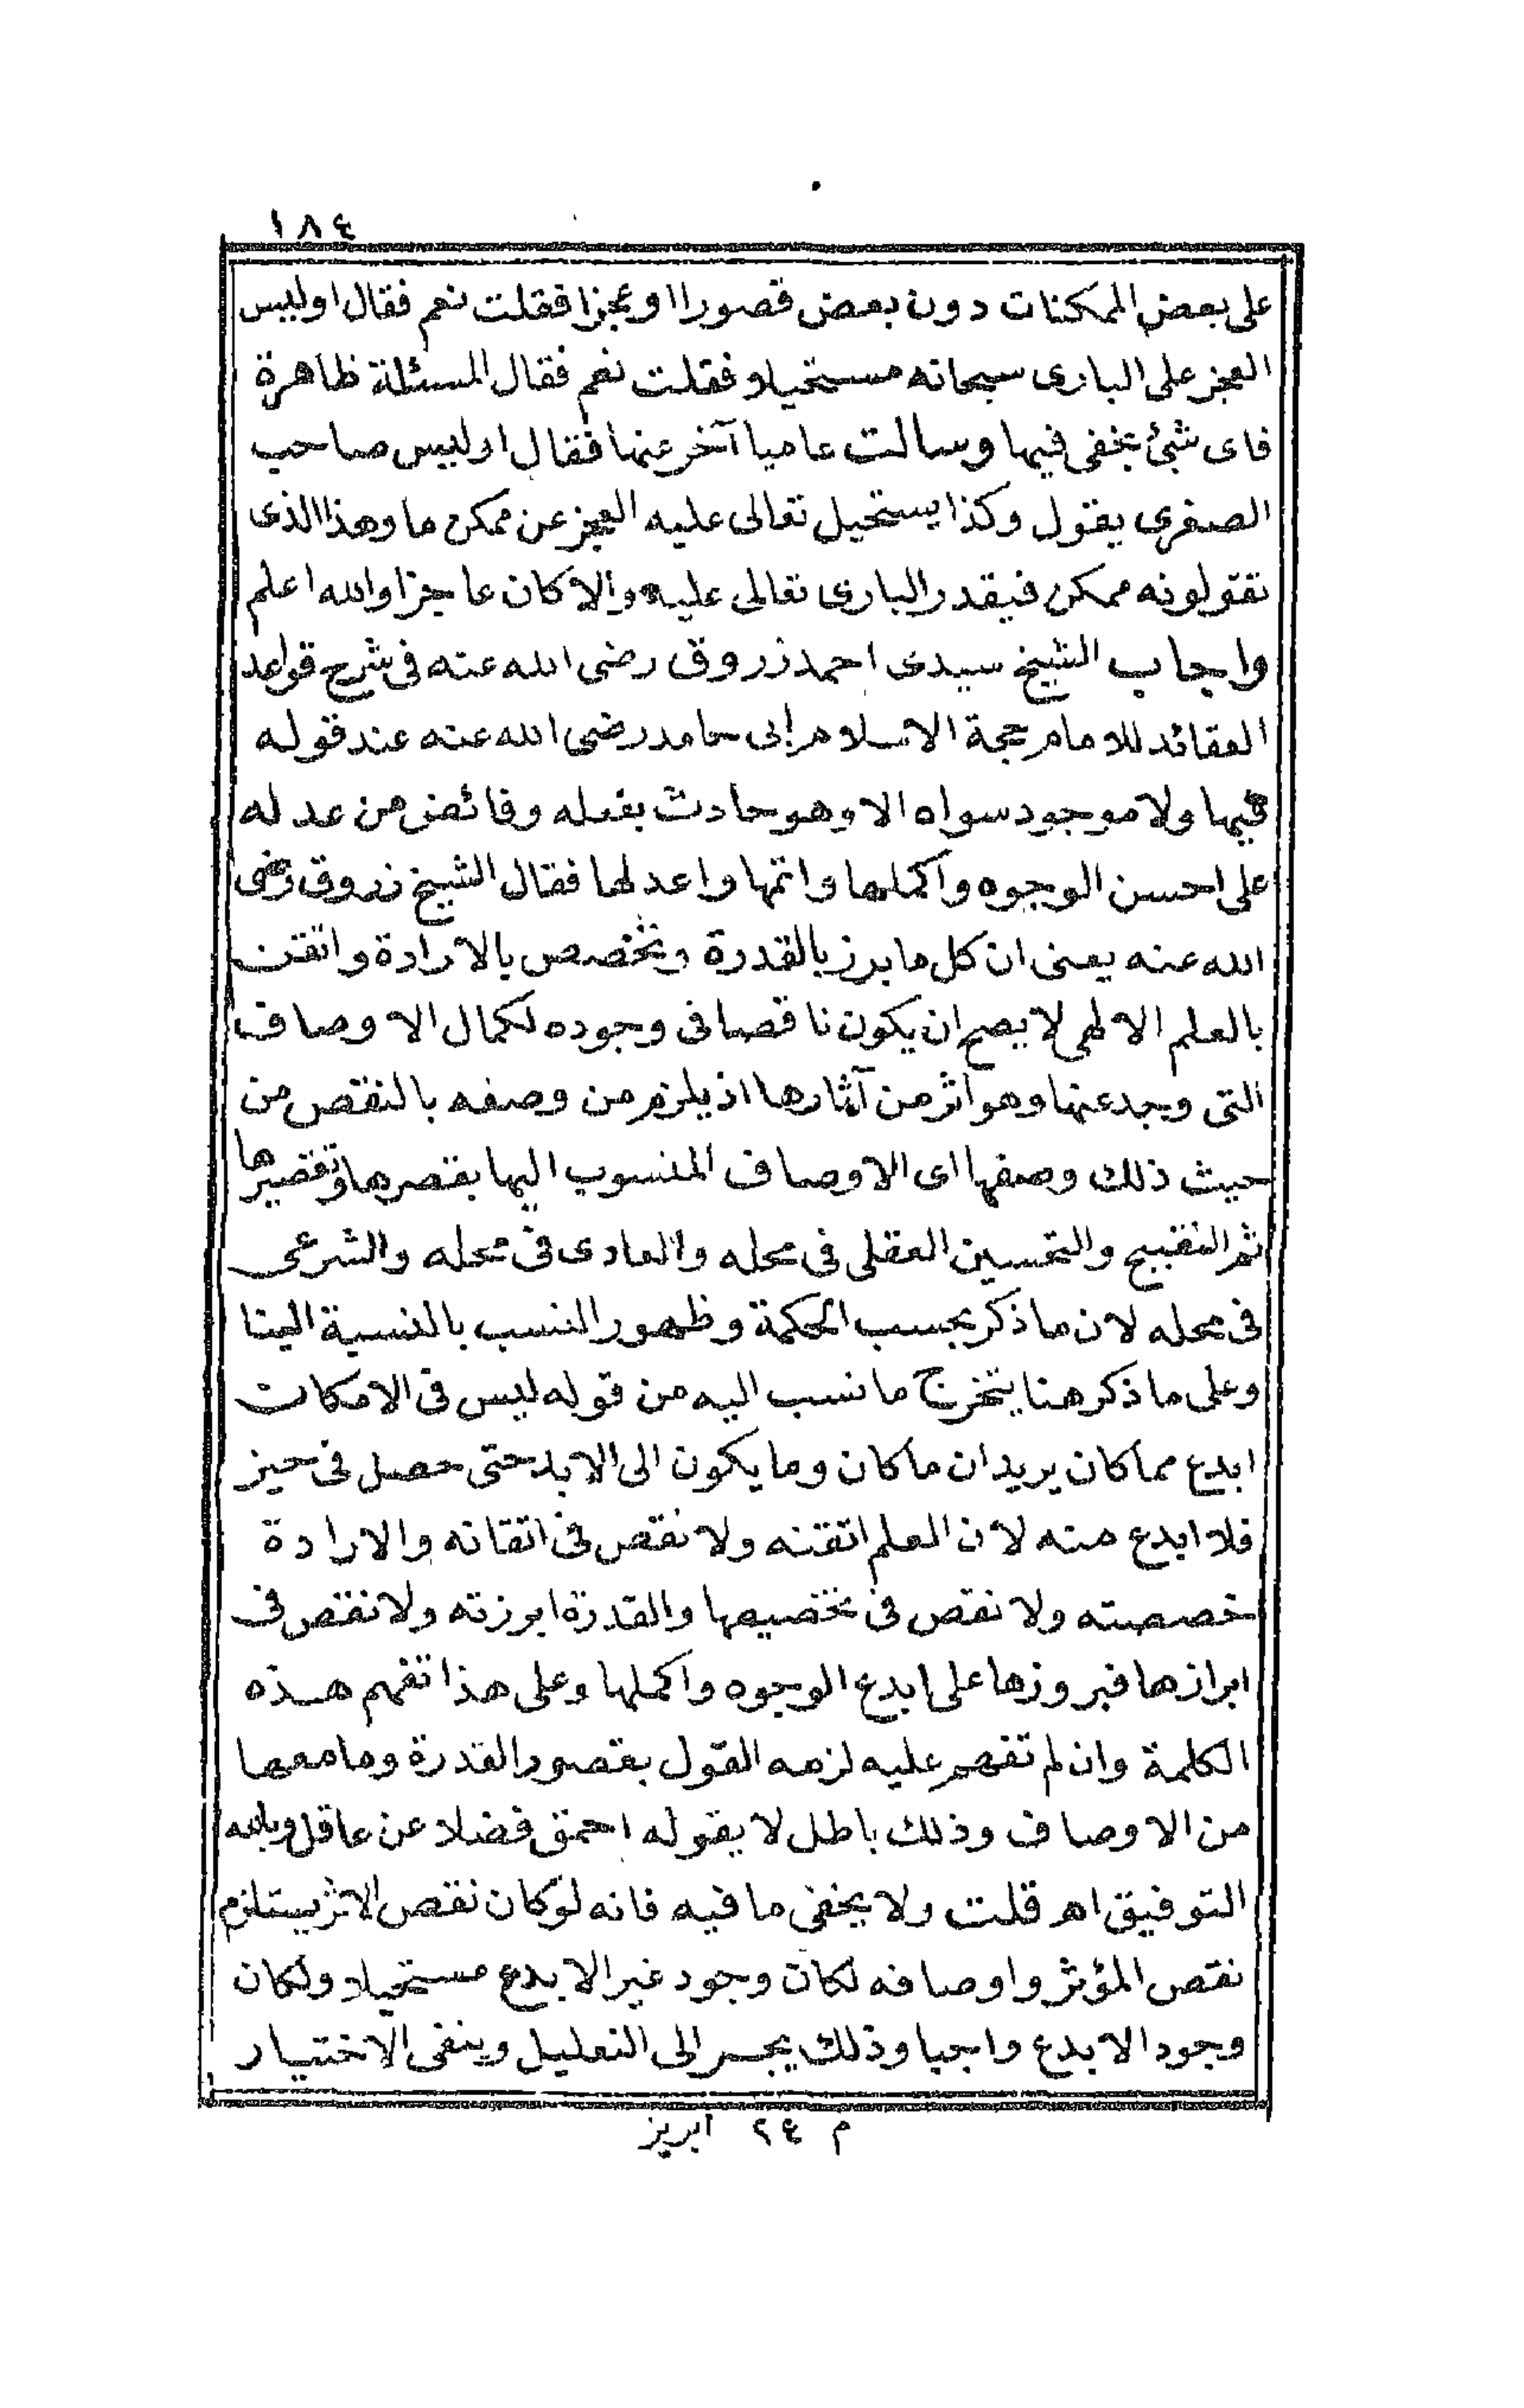 ١٨٤
على بعض الممكنات دون بعض قصورا او عجزا فقلت نعم فقال اوليس
العجز على البارى سبحانه مستحيلا فقلت نعم فقال المسئلة ظاهرة
فاى شئ يخفى فيها وسالت عاميا آخر عنها فقال اوليس صاحب
الصغرى يقول وكذا يستحيل تعالى عليه العجز عن ممكن ما وهذا الذى
تقولونه ممكن فيقدر البارى تعالى عليه والا كان عاجزا والله اعلم
واجاب الشيخ سيدى احمد زروق رضى الله عنه فى شرح قواعد
العقائد للامام حجة الاسلام ابى حامد رضى الله عنه عند قوله
فيها ولا موجود سواه الا وهو حادث بفعله وفائض من عدله
على احسن الوجوه واكملها واتمها واعدلها فقال الشيخ زروق رضى
الله عنه يعنى ان كل ما برز بالقدرة وتخصص بالارادة واتقن
بالعلم الالهى لا يصح ان يكون ناقصا فى وجوده لكمال الاوصاف
التى وجد عنها وهو اثر من آثارها اذ يلزم من وصفه بالنقص من
حيث ذلك وصفها اى الاوصاف المنسوب اليها بقصرها وتقصيرها
ثم التقبيح والتحسين العقلى فى محله والعادى فى محله والشرعى
فى محله لان ما ذكر بحسب الحكمة وظهور النسب بالنسبة الينا
وعلى ما ذكر هنا يتخرج ما نسب اليه من قوله ليس فى الامكان
ابدع مما كان يريد ان ما كان وما يكون الى الابد حتى حصل فى حيز
فلا ابدع منه لان العلم اتقنه ولا نقص فى اتقانه والارادة
خصصته ولا نقص فى تخصيصها والقدرة ابرزته ولا نقص فى
ابرازها فبروزها على ابدع الوجوه واكملها وعلى هذا تفهم هذه
الكلمة وان لم تفهم عليه لزمه القول بقصور القدرة وما معها
من الاوصاف وذلك باطل لا يقوله احمق فضلا عن عاقل وبالله
التوفيق اهـ قلت ولا يخفى ما فيه فانه لو كان نقص الاثر يستلزم
نقص المؤثر واوصافه لكان وجود غير الابدع مستحيلا ولكان
وجود الابدع واجبا وذلك يجر الى التعليل وينفى الاختيار
م ٢٤ ابريز